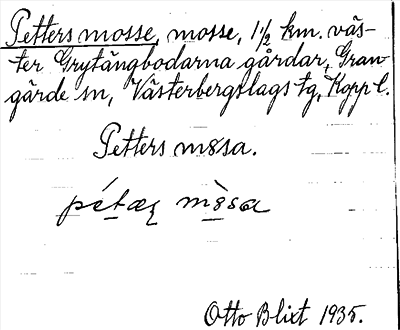 Petters mosse, mosse, 1½ km. väs-
ter Grytängbodarna gårdar, Gran-
gärde sn, Västerbergslags tg, Kopp l.
Petters mossa.
pétæɽ mòsa
Otto Blixt 1935.